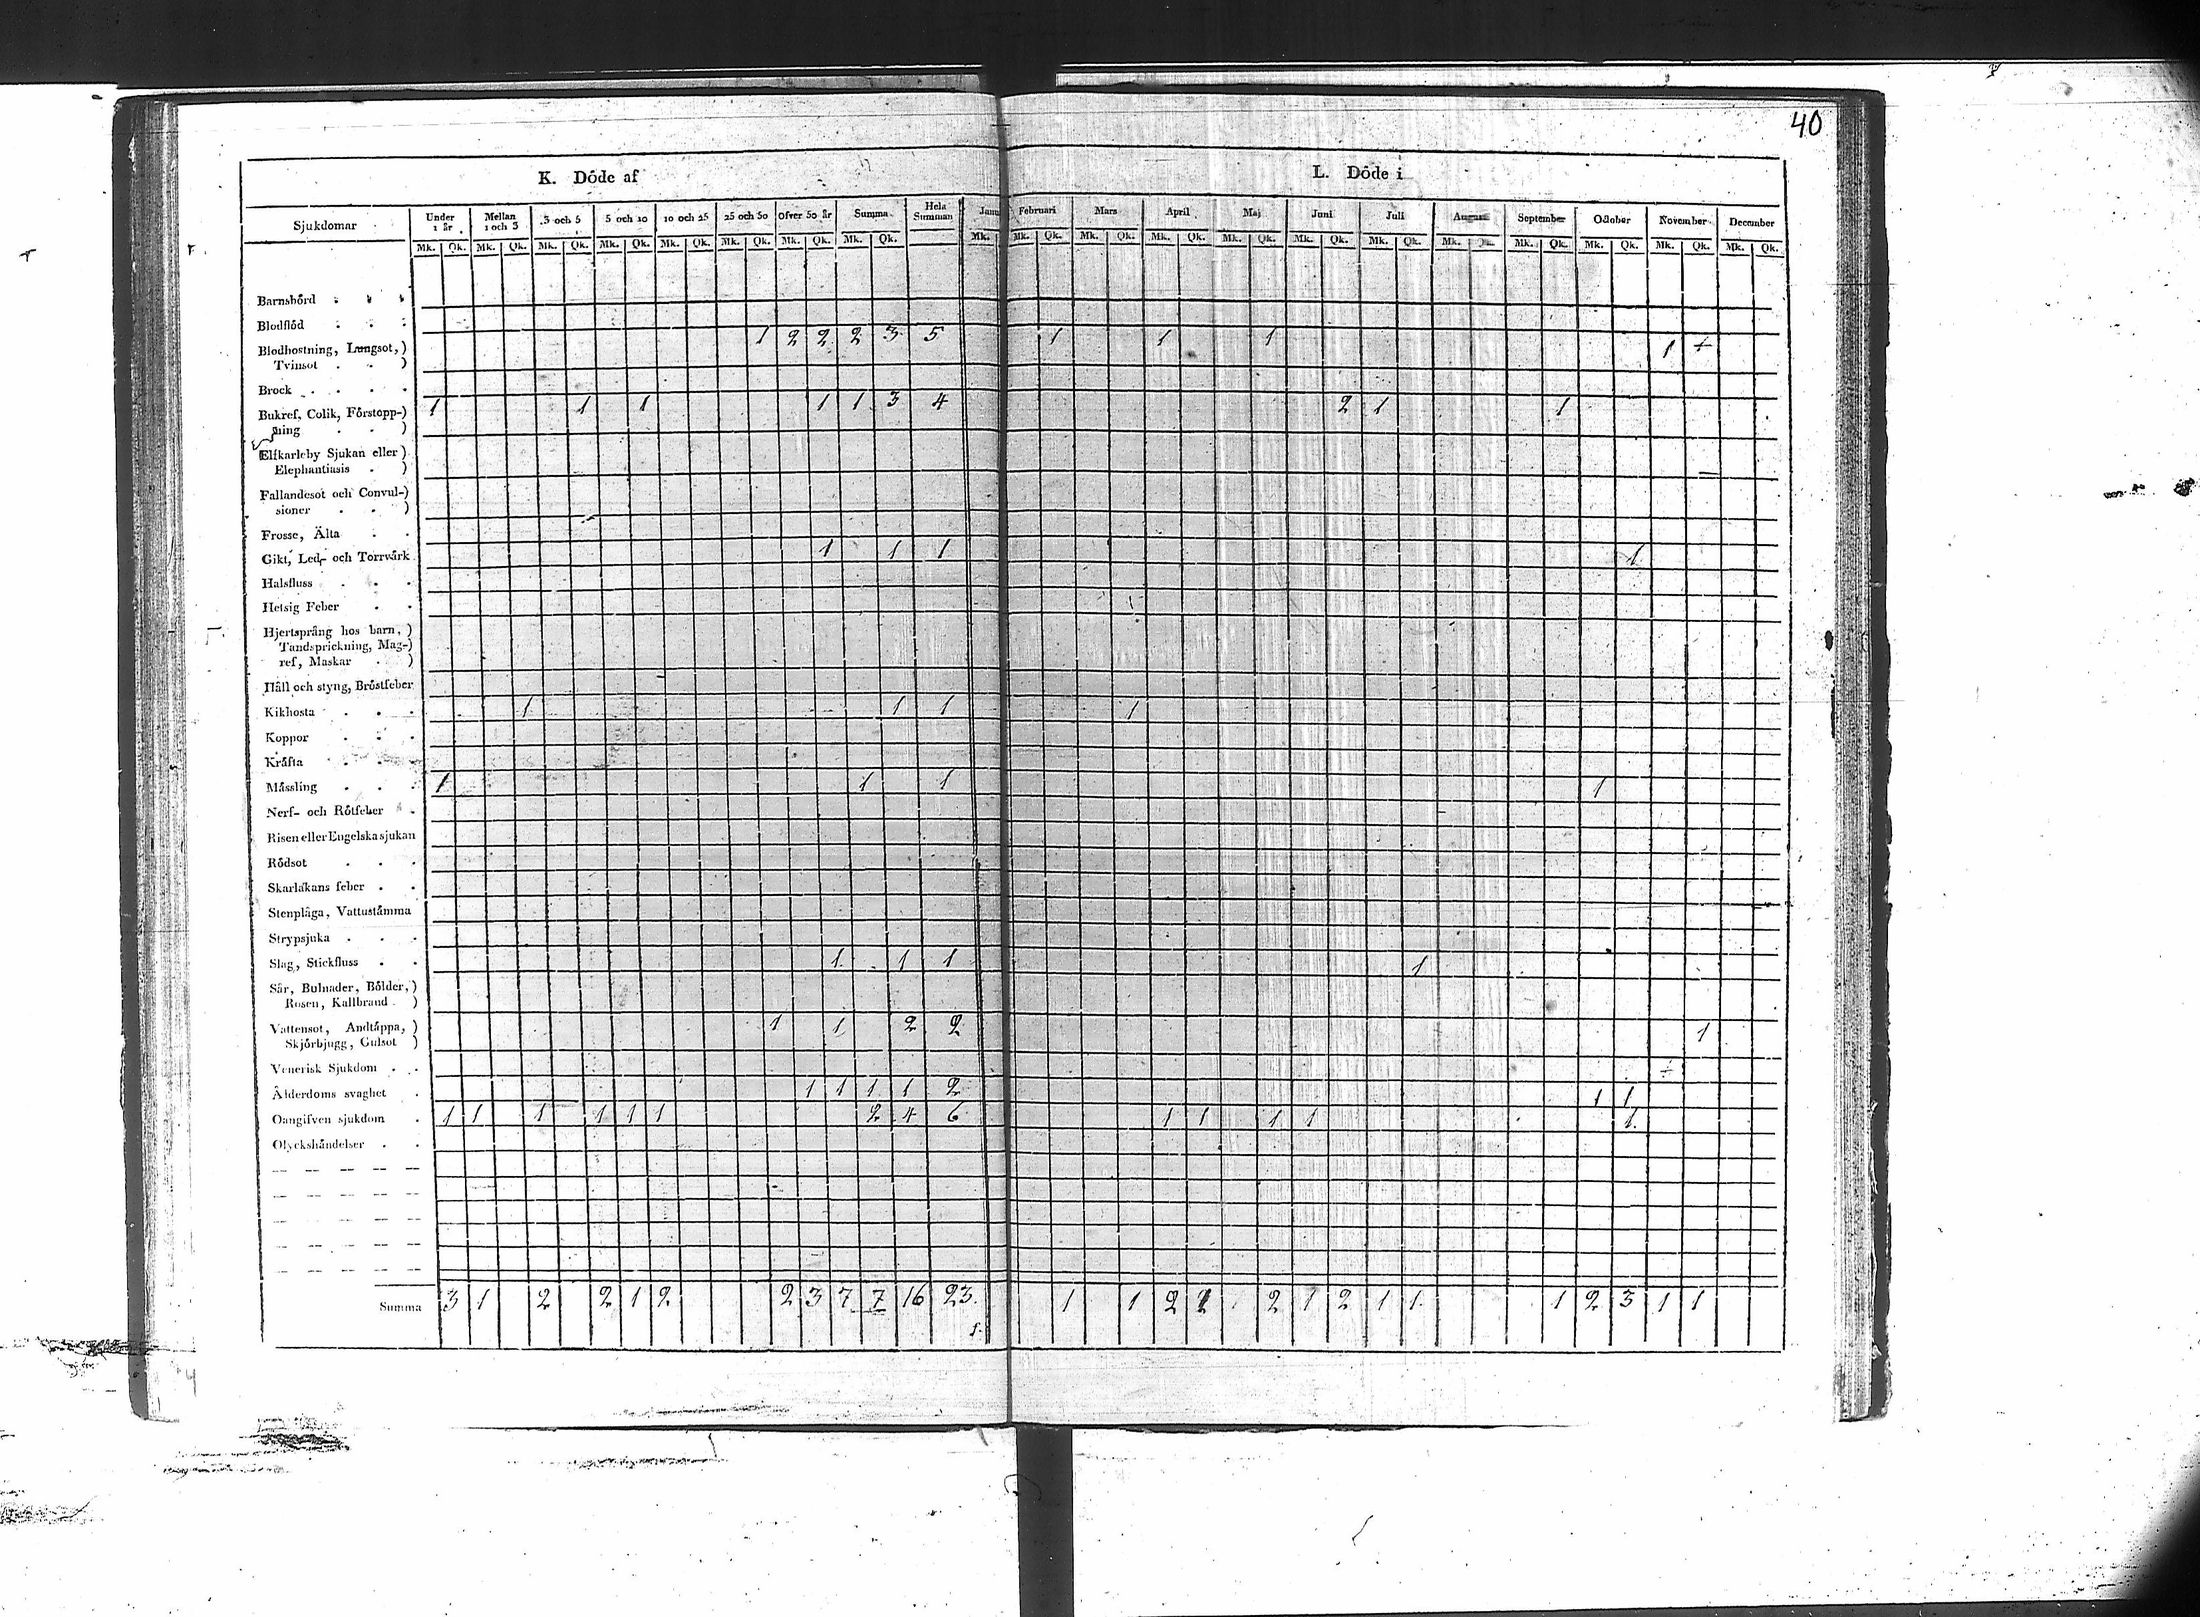 40
K. Döde af
L. Döde i
Sjukdomar Under 1 år Mellan 1 och 3 3 och 5 5 och 10 10 och 25 25 och 50 Öfver 50 år Summa Hela Summan Janu Februari Mars April Maj Juni Juli September October November December
Mk. Qk. Mk. Qk. Mk. Qk. Mk. Qk. Mk. Qk. Mk. Qk. Mk. Qk. Mk. Qk. Mk. Mk. Qk. Mk. Qk. Mk. Qk. Mk. Qk. Mk. Qk. Mk. Qk. Mk. Qk. Mk. Qk. Mk. Qk. Mk. Qk. Mk. Qk.
Barnsbörd
Blodflöd
Blodhostning, Lungsot,) 1 2 2 2 3 5 1 1 1 1 +
Tvinsot )
Brock
Bukref, Colik, Förstopp-) 1 1 1 1 1 3 4 2 1 1
ning )
Elfkarleby Sjukan eller )
Elephantiasis )
Fallandesot och Convul-)
sioner )
Frosse, Älta
Gikt, Led- och Torrvärk 1 1 1 1
Halsfluss
Hetsig Feber
Hjertsprång hos barn, )
Tandsprickning, Mag-)
ref, Maskar )
Håll och styng, Bröstfeber
Kikhosta 1 1 1 1
Koppor
Kräfta
Mässling 1 1 1 1
Nerf- och Rötfeber
Risen eller Engelska sjukan
Rödsot
Skarlakans feber
Stenplåga, Vattustämma
Strypsjuka
Slag, Stickfluss 1 1 1 1
Sår, Bulnader, Bölder, )
Rosen, Kallbrand )
Vattensot, Andtäppa, ) 1 1 2 2 1
Skjörbjugg, Gulsot )
Venerisk Sjukdom ÷
Ålderdoms svaghet 1 1 1 1 2 1 1
Oangifven sjukdom 1 1 1 1 1 1 2 4 6 1 1 1 1 1
Olyckshändelser
Summa 3 1 2 2 1 2 2 3 7 7 16 23. 1 1 2 2 2 1 2 1 1 1 2 3 1 1